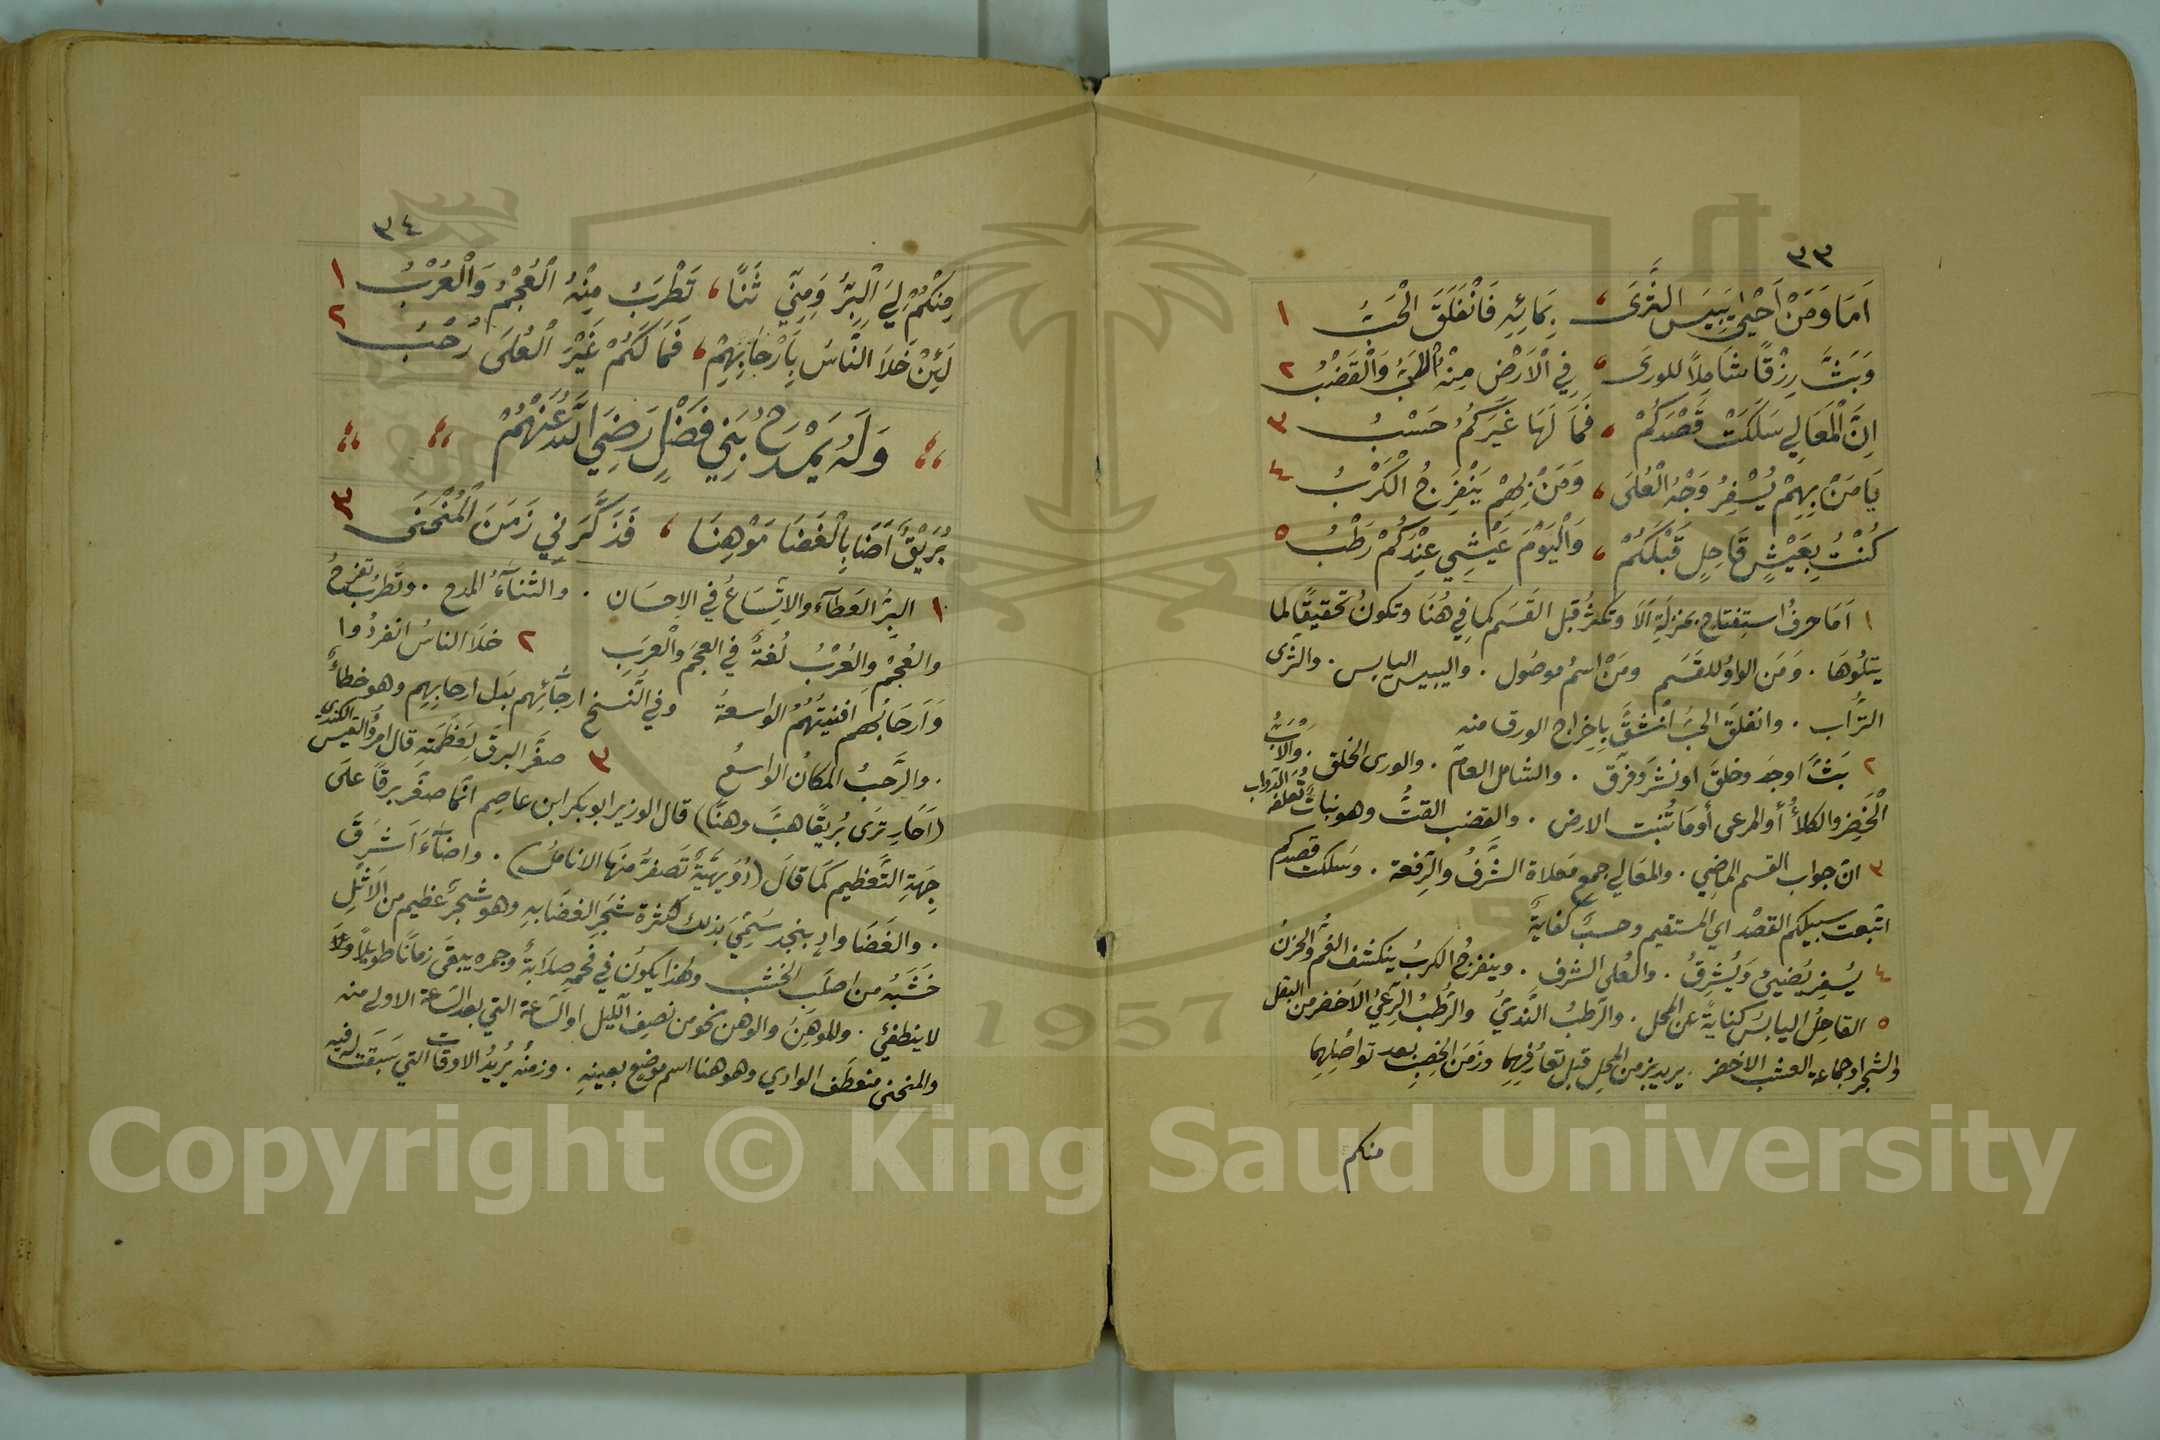 ٣٣
أَمَا وَمَنْ أَحْيَى يَبِيسَ الثَّرَى ، بِمَائِهِ فَانْفَلَقَ الْحَبُّ ١
وَبَثَّ رِزْقًا شَامِلًا للورَى ، فِي الْأَرْضِ مِنْهُ الْأَبُّ وَالْقَضْبُ ٢
إِنَّ الْمَعَالِي سَلَكَتْ قَصْدَكُمْ ، فَمَا لَهَا غَيْرَكُمُ حَسْبُ ٣
يَا مَنْ بِهِمْ يُسْفِرُ وَجْهُ الْعُلَى ، وَمَنْ بِهِمْ يَنْفَرِجُ الْكَرْبُ ٤
كُنْتُ بِعَيْشٍ قَاحِلٍ قَبْلَكُمْ ، وَالْيَوْمَ عَيْشِي عِنْدَكُمْ رَطْبُ ٥
١ أَمَا حرفُ استِفتاح بمنزلَةِ أَلَا وتكثرُ قبل القَسَم كما في هُنَا وتكونُ تحقيقًا لما
يتلُوهَا . وَمَن الواوُ للقَسَم ومَنْ اسمُ موصُول . واليبيس اليابس . والثرى
التُّراب . وانفلقَ الحَبُّ انْشقَّ بِاِخراج الورق منه
٢ بَثَّ اوجدَ وخلقَ او نشرَ وفرّق . والشامل العامّ . والورى الخلق . وَالْأَبُّ
الْخَضِر والكلأُ أو المرعى أو مَا تُنبت الارض . والقضب القتُّ وهو نباتٌ تعلفهُ الدواب
٣ انّ جواب القسم الماضِي . والمعَالي جمع مَعلاة الشَّرَفُ والرِفعة . وسَلكت قصدكم
اتّبعت سبيلكم القصْد اي المستقيم وحسبٌ كفايةٌ
٤ يُسفِر يُضيئ وَيُشرِقُ . والعُلى الشرف . وينفرجُ الكربُ ينكشف الغمُّ والحزنُ
٥ القاحِلُ اليابسُ كنايةً عن المحل . والرَطبُ النَّديُّ والرُطبُ الرِعيُ الاَخضر من البقل
والشجر او جماعة العشب الاخضر . يريد بزمن المحلِ قبل تعارُفِهِما وزَمَن الخِصبِ بعد تواصُلِهِما
منكم
٣٤
مِنْكُمْ لِيَ الْبِرُّ وَمِنِّي ثَنًا ، تَطْرَبُ مِنْهُ الْعُجْمُ وَالْعُرْبُ ١
لَئِنْ خَلَا النَّاسُ بِأَرْحَابِهِمْ ، فَمَا لَكُمْ غَيْرَ الْعُلَى رُحْبُ ٢
وَلَهُ يَمْدَحُ بَنِي فَضْلٍ رَضِيَ اللّٰهُ عَنْهُمْ
بُرَيْقٌ أَضَا بِالْغَضَا مَوْهِنَا ، فَذَكَّرَنِي زَمَنَ الْمُنْحَنَى ٣
١ البِرُّ العَطآء والاِتِّسَاعُ في الاِحسَان . والثناءُ المدح . وتَطرَبُ تفرحُ
والعُجْم والعُرْبُ لُغةٌ في العجَم والْعَرَبِ ٢ خلَا الناسُ انفردُوا
وَارحَابُهم افنيتهُمُ الواسعةُ وفي النُسخ ارجَائِهم بَدل ارحابِهِم وهو خطاءٌ
. والرَّحبُ المكانُ الواسِعُ ٣ صغَّر البرقَ لِعَظَمَتِهِ قال امرُؤُ القيس الكندي
(اَحَارِ تَرَى بُرَيقًا هبَّ وهنًا) قال الوزير ابو بكر ابن عاصِم انّما صغّر برقًا علَى
جِهَةِ التَّعظيم كَمَا قالَ (دُوَيهِيَةٌ تَصفرُّ مِنهَا الانامل) . واضآءَ اَشرَقَ
. والغَضَا وادٍ بنجد سُمِّيَ بذلك لكثرة شجرِ الغضَا بهِ وهو شجرٌ عظيم من الاَثلِ
خَشَبُه من اصلَب الخشب ولهذا يكونُ في فحمهِ صلَابةٌ وجمره يبقَى زمانًا طويلًا
لا ينطفئ . والموهِنُ والوهن نحو من نصِف الليل او السَّاعة التي بعد السَّاعة الاولى منه
والمنحنى منعطَف الوادي وهو هنا اسم موضِع بعينِهِ . وزمنُه يُريدُ الاوقات التي سَبَقَت له فيه
Copyright © King Saud University
1957